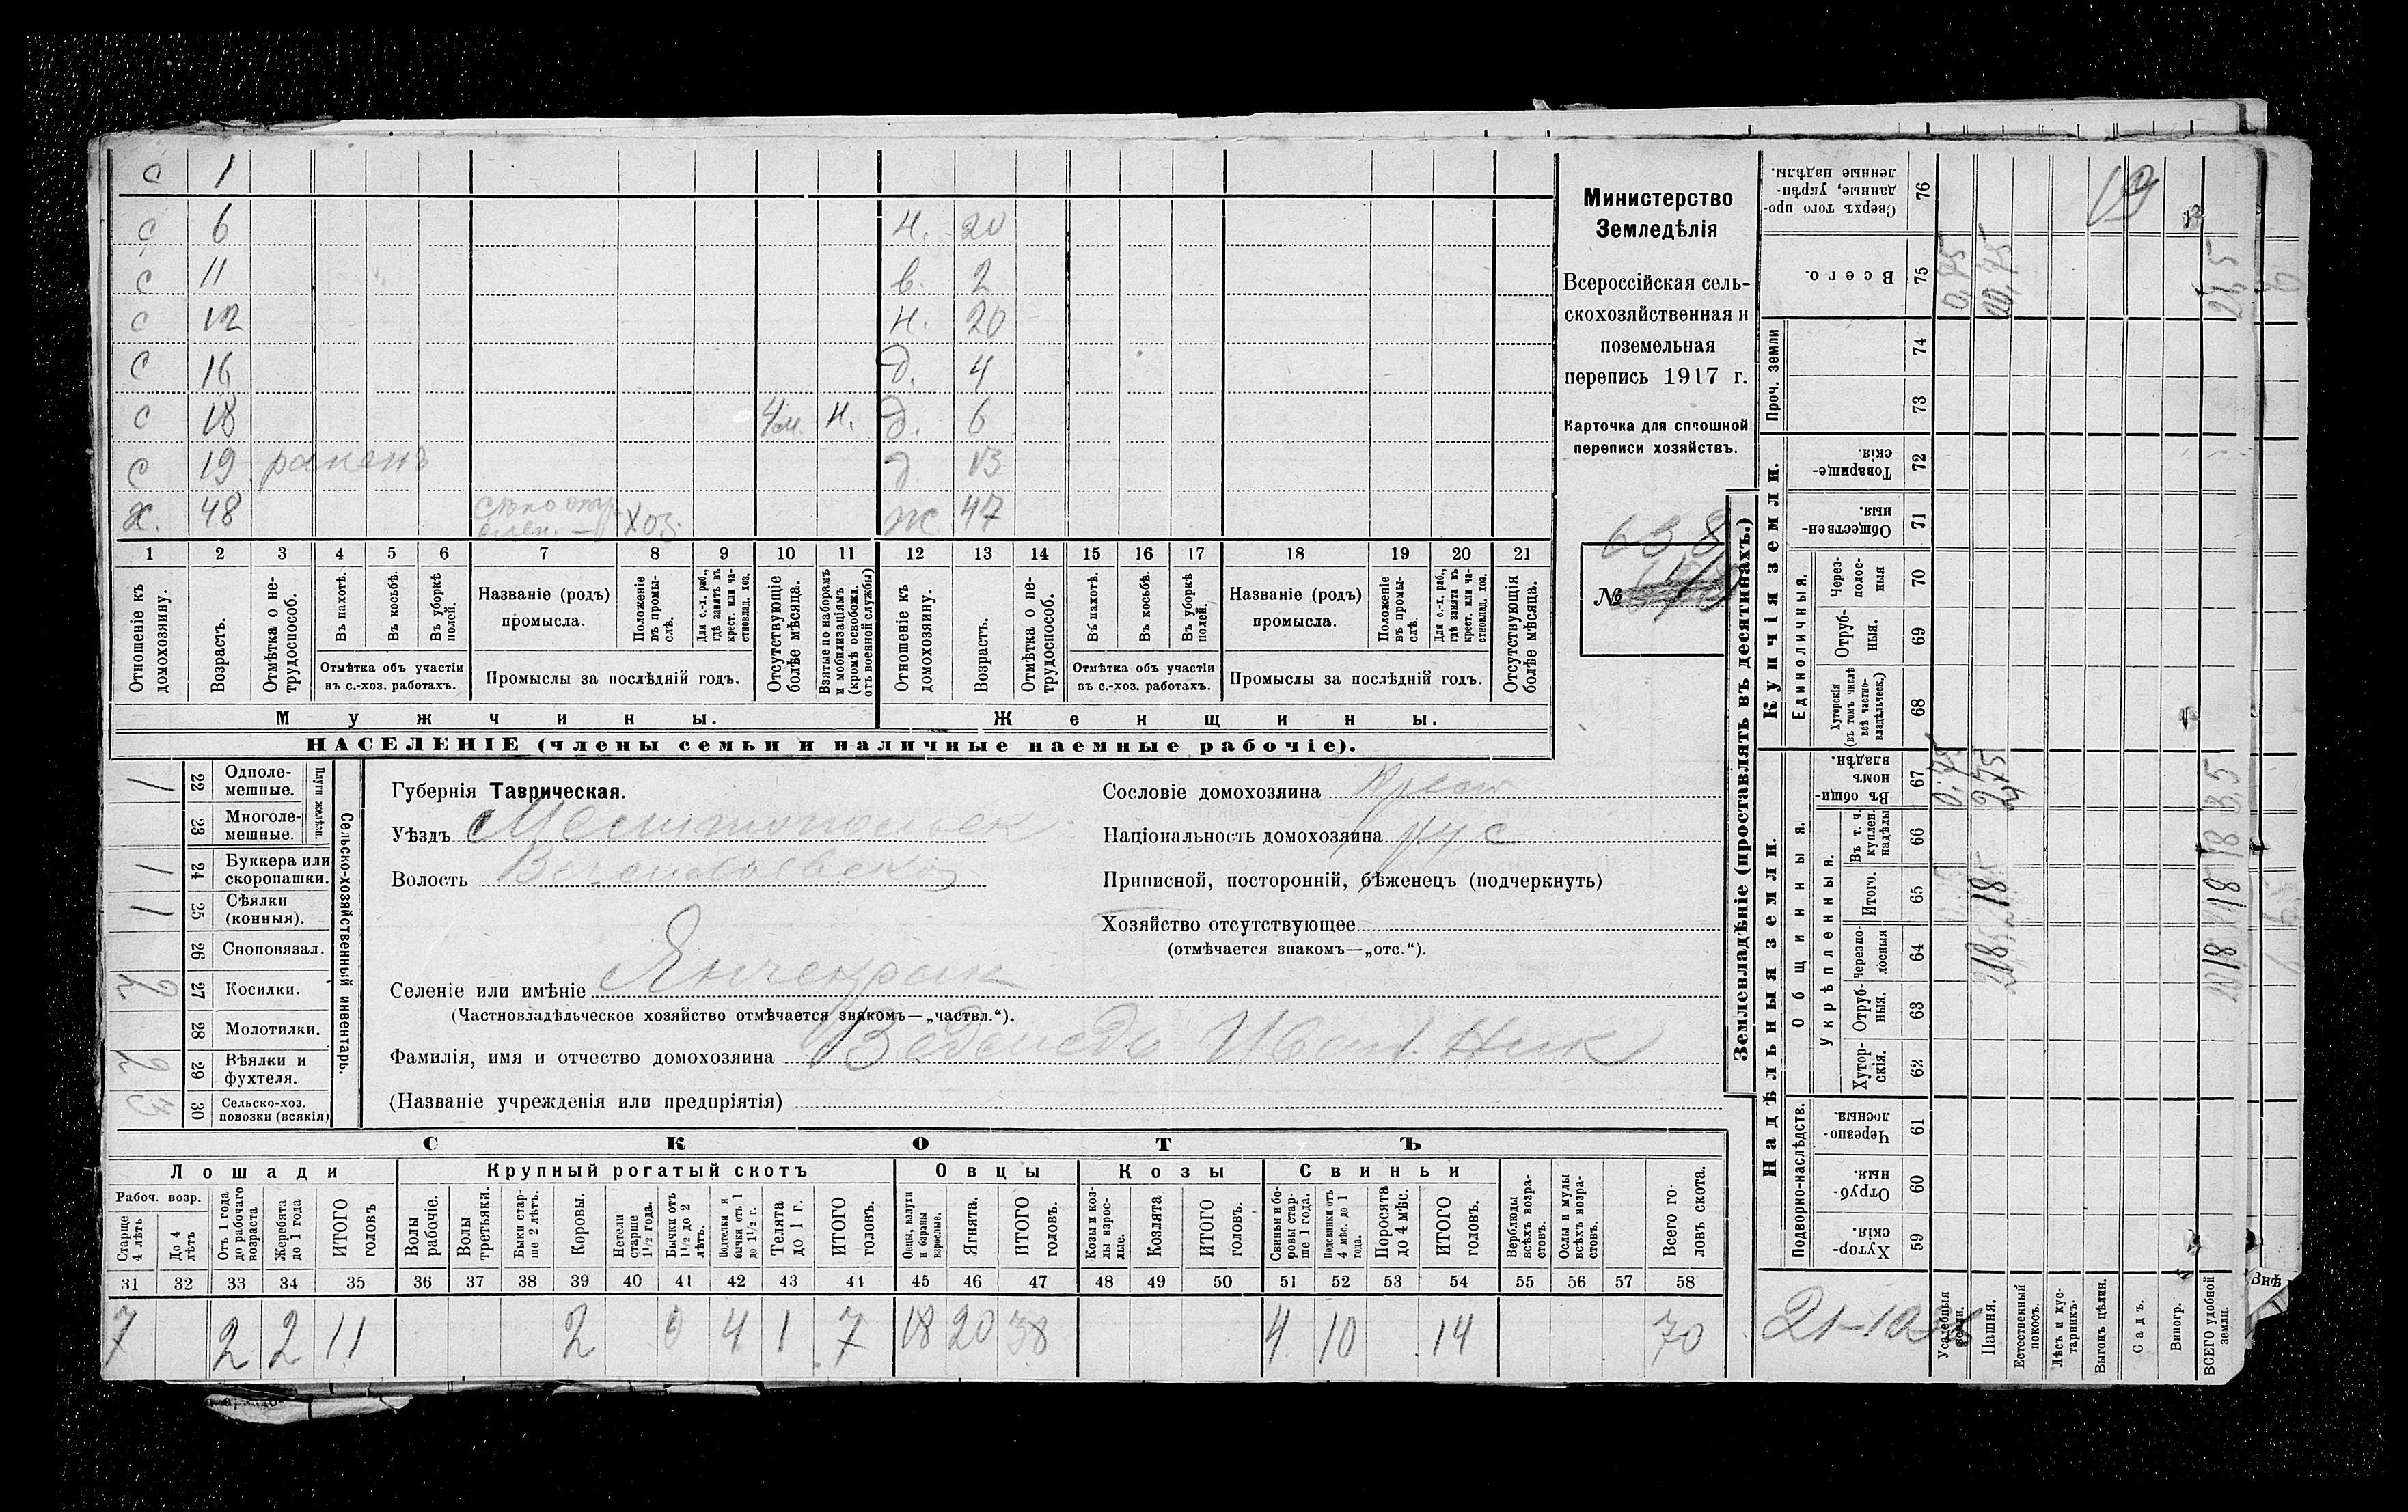 с 1
с 6 н. 20
с 11 в. 2
с 12 н. 20
с 16 д. 4
с 18 4 м. н. д. 6
с 19 раненъ д. 13
х. 48 хоз. ж 47
1 2 3 4 5 6 7 8 9 10 11 12 13 14 15 16 17 18 19 20 21
Отношеніе къ домохозяину.
Возрастъ.
Отмѣтка о нетрудоспособ.
Въ пахотѣ.
Въ косьбѣ.
Въ уборкѣ полей.
Отмѣтка объ участіи
въ с.-хоз. работахъ.
Названіе (родъ)
промысла.
Положеніе въ промыслѣ.
Для с.-х. раб., гдѣ занятъ въ крест. или частновлад. хоз.
Промыслы за послѣдній годъ.
Отсутствующіе болѣе мѣсяца.
Взятые по наборамъ и мобилизаціямъ (кромѣ освобожд. отъ военной службы)
Отношеніе къ домохозяину.
Возрастъ.
Отмѣтка о нетрудоспособ.
Въ пахотѣ.
Въ косьбѣ.
Въ уборкѣ полей.
Отмѣтка объ участіи
въ с.-хоз. работахъ.
Названіе (родъ)
промысла.
Положеніе въ промыслѣ.
Для с.-х. раб., гдѣ занята въ крест. или частновлад. хоз.
Промыслы за послѣдній годъ.
Отсутствующія болѣе мѣсяца.
Мужчины.
Женщины.
НАСЕЛЕНІЕ (члены семьи и наличные наемные рабочіе).
Министерство
Земледѣлія
Всероссійская сель-
скохозяйственная и
поземельная
перепись 1917 г.
Карточка для сплошной
переписи хозяйствъ.
638
№
Сельско-хозяйственный инвентарь.
Плуги желѣзн.
1 22 Одноле-
мешные.
23 Многоле-
мешные.
1 24 Буккера или
скоропашки.
1 25 Сѣялки
(конныя).
26 Сноповязал.
2 27 Косилки.
28 Молотилки.
2 29 Вѣялки и
фухтеля.
3 30 Сельско-хоз.
повозки (всякія)
Губернія Таврическая.
Уѣздъ Мелитопольск
Волость Васильевская
Селеніе или имѣніе Янчекрак
(Частновладѣльческое хозяйство отмѣчается знакомъ—„частвл.“).
Фамилія, имя и отчество домохозяина Иван. Ник
(Названіе учрежденія или предпріятія)
Сословіе домохозяина Крест
Національность домохозяина рус
Приписной, посторонній, бѣженецъ (подчеркнуть)
Хозяйство отсутствующее
(отмѣчается знакомъ—„отс.“).
СКОТЪ
Лошади Крупный рогатый скотъ Овцы Козы Свиньи
Рабоч. возр.
Старше 4 лѣтъ
До 4 лѣтъ
Отъ 1 года до рабочаго возраста
Жеребята до 1 года
ИТОГО головъ
Волы рабочіе.
Волы третьяки.
Быки старше 2 лѣтъ.
Коровы.
Нетели старше 1½ года.
Бычки отъ 1½ до 2 лѣтъ.
Подтелки и бычки отъ 1 до 1½ г.
Телята до 1 г.
ИТОГО головъ.
Овцы, валухи и бараны взрослые.
Ягнята.
ИТОГО головъ.
Козы и козлы взрослые.
Козлята
ИТОГО головъ.
Свиньи и боровы старше 1 года.
Подсвинки отъ 4 мѣс. до 1 года.
Поросята до 4 мѣс.
ИТОГО головъ.
Верблюды всѣхъ возрастовъ.
Ослы и мулы всѣхъ возрастовъ.
Всего головъ скота.
31 32 33 34 35 36 37 38 39 40 41 42 43 44 45 46 47 48 49 50 51 52 53 54 55 56 57 58
7 2 2 11 2 4 1 7 18 20 38 4 10 14 70
Землевладѣніе (проставлять въ десятинахъ.)
Купчія земли.
Надѣльныя земли.
Сверхъ того проданные, укрѣпленные надѣлы. 76
Всего. 75 0,75 21,5
Проч. земли 74
73
Товарищескія. 72
Общественныя. 71
Единоличныя.
Черезполосныя 70
Отрубныя. 69
Хуторскія (въ томъ числѣ всѣ частновладѣльческ.) 68
Общинныя.
Въ общинномъ владѣн. 67 0,75 2,75 3,5
Укрѣпленныя.
Въ т. ч. куплен. надѣлы 66 18
Итого. 65 18 18
Черезполосныя 64 18 18
Отрубныя. 63
Хуторскія. 62
Подворно-наслѣдств.
Черезполосныя. 61
Отрубныя. 60
Хуторскія. 59
Усадебныя земли.
Пашня.
Естественный покосъ.
Лѣсъ и кустарникъ.
Выгонъ цѣлин.
Садъ.
Виногр.
ВСЕГО удобной земли.
19
Внѣ